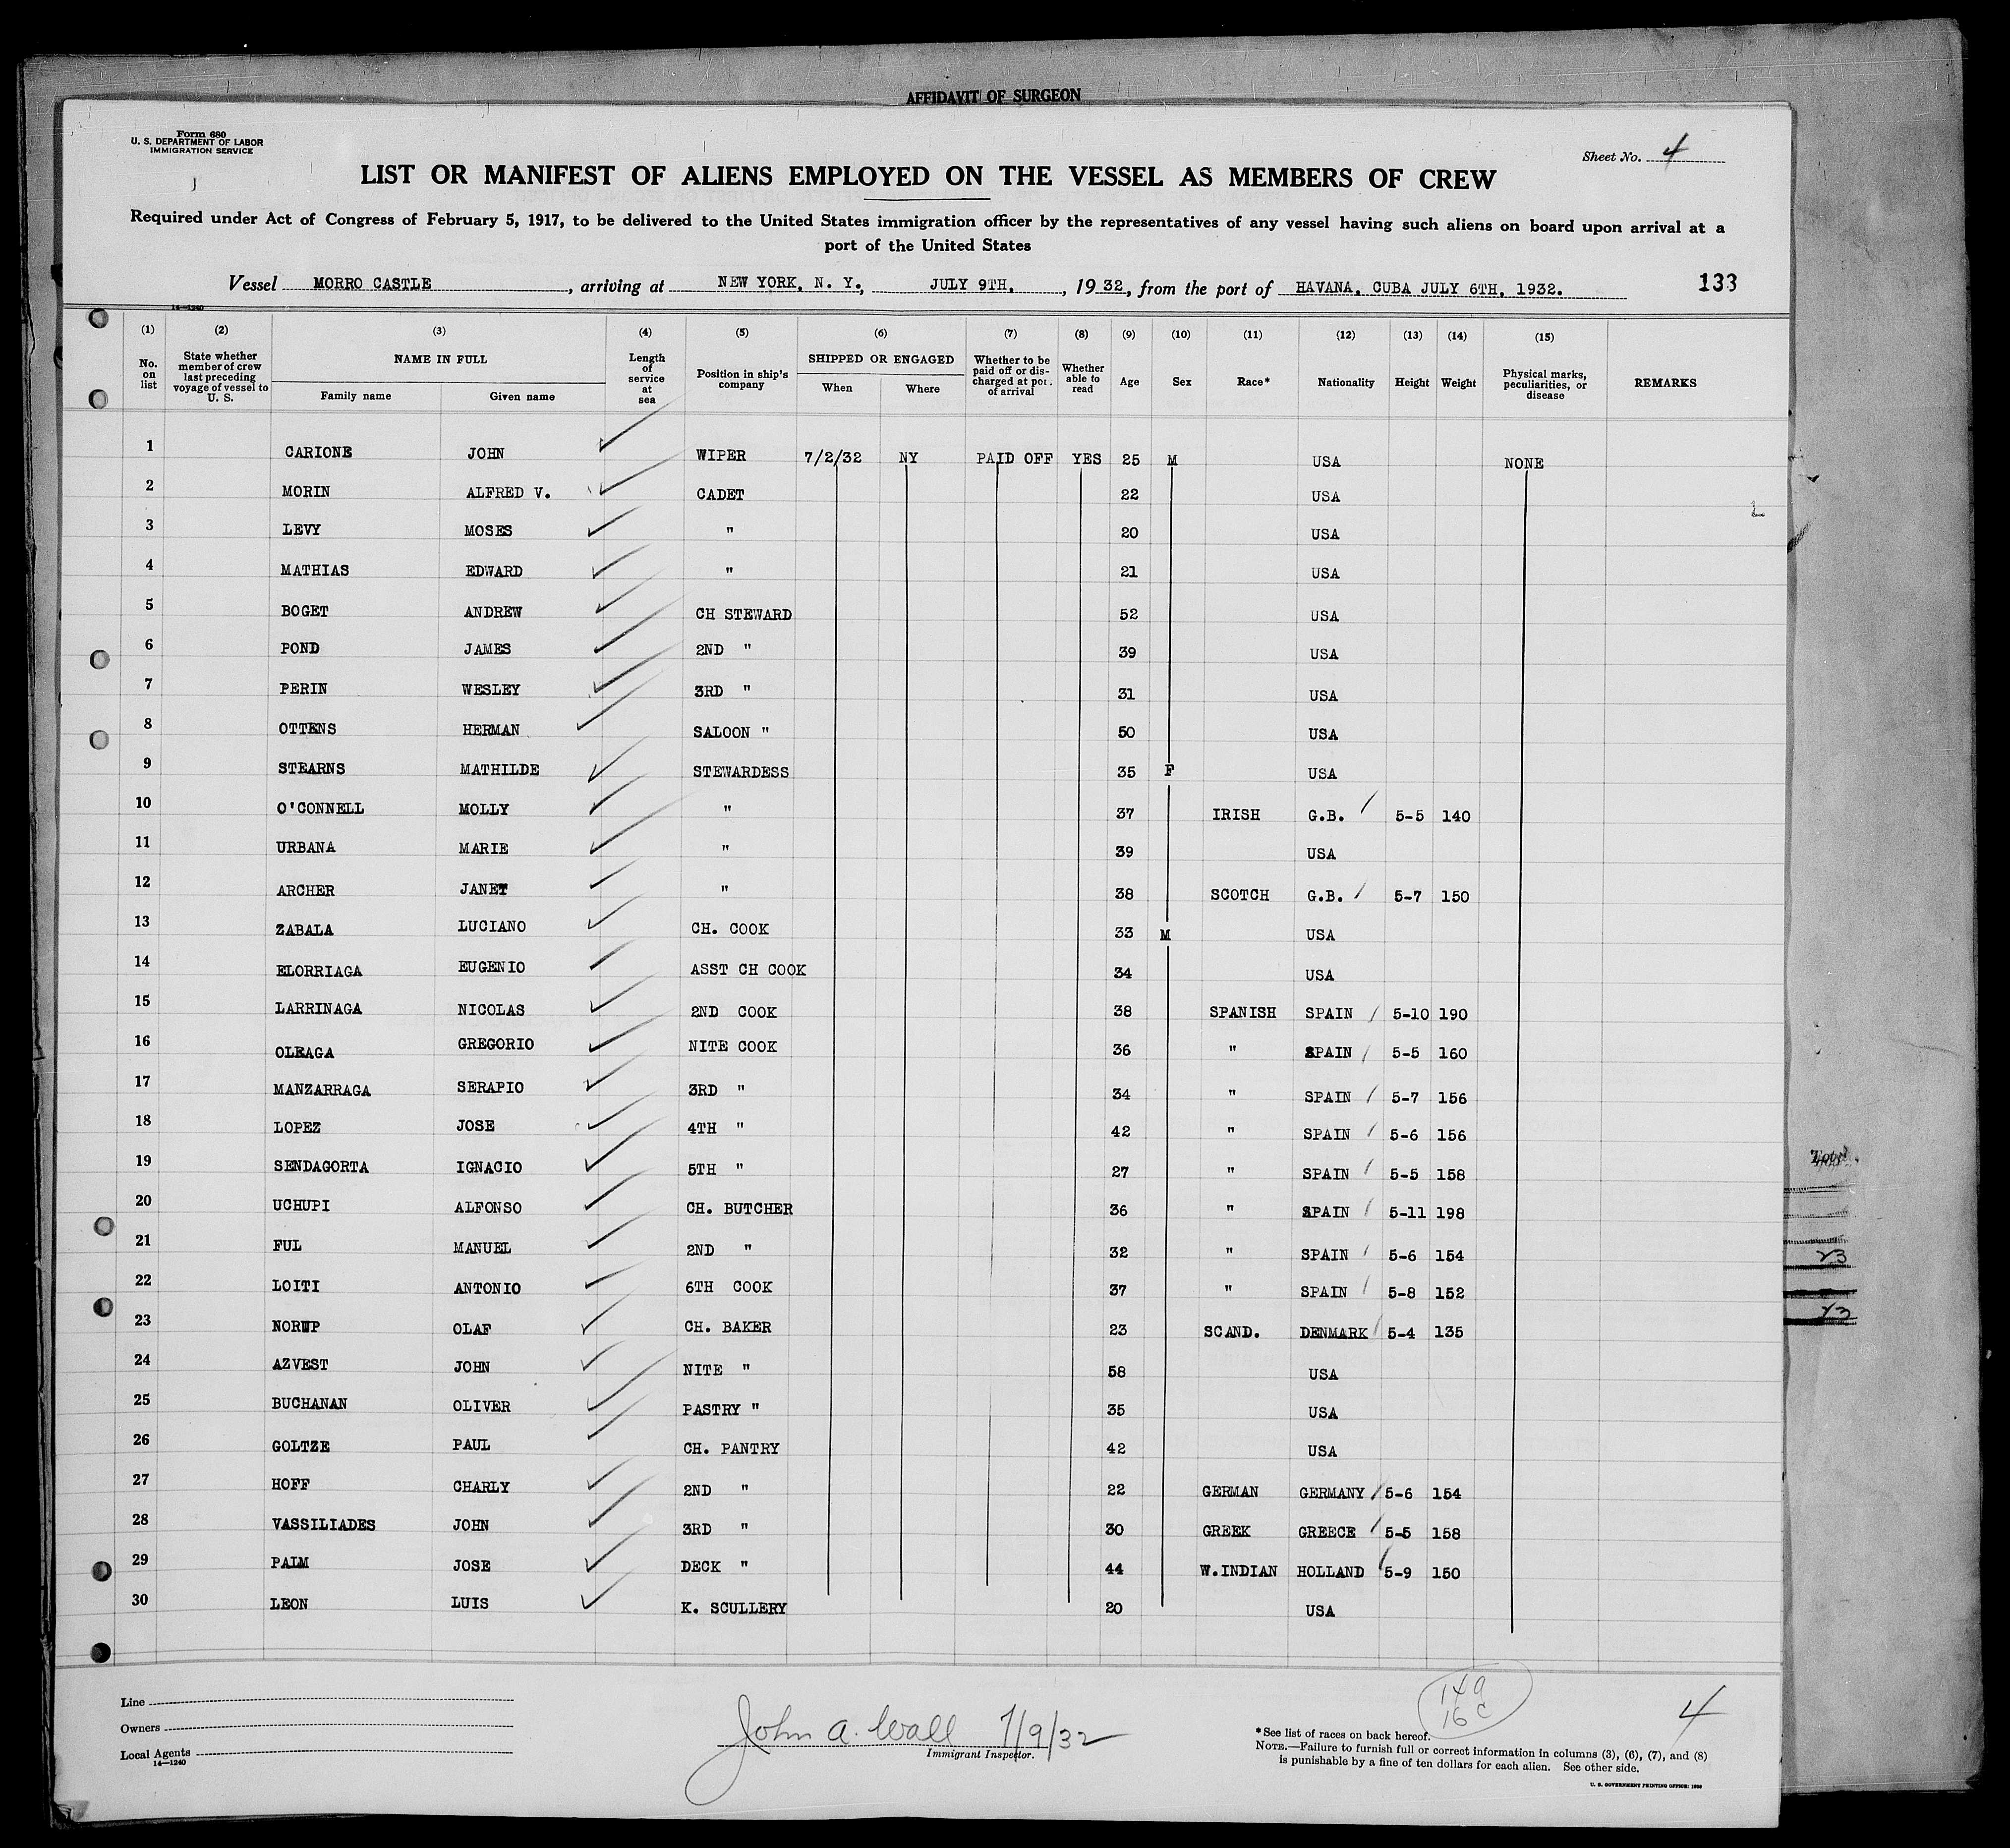 AFFIDAVIT OF SURGEON
Form 680
U. S. DEPARTMENT OF LABOR
IMMIGRATION SERVICE
Sheet No. 4
LIST OR MANIFEST OF ALIENS EMPLOYED ON THE VESSEL AS MEMBERS OF CREW
Required under Act of Congress of February 5, 1917, to be delivered to the United States immigration officer by the representatives of any vessel having such aliens on board upon arrival at a
port of the United States
Vessel MORRO CASTLE, arriving at NEW YORK, N. Y., JULY 9TH., 1932, from the port of HAVANA, CUBA JULY 6TH, 1932. 133
14—1240
(1) (2) (3) (4) (5) (6) (7) (8) (9) (10) (11) (12) (13) (14) (15)
No. on list State whether member of crew last preceding voyage of vessel to U. S. NAME IN FULL Family name Given name Length of service at sea Position in ship's company SHIPPED OR ENGAGED When Where Whether to be paid off or discharged at port of arrival Whether able to read Age Sex Race* Nationality Height Weight Physical marks, peculiarities, or disease REMARKS
1 CARIONE JOHN WIPER 7/2/32 NY PAID OFF YES 25 M USA NONE
2 MORIN ALFRED V. CADET 22 USA
3 LEVY MOSES " 20 USA
4 MATHIAS EDWARD " 21 USA
5 BOGET ANDREW CH STEWARD 52 USA
6 POND JAMES 2ND " 39 USA
7 PERIN WESLEY 3RD " 31 USA
8 OTTENS HERMAN SALOON " 50 USA
9 STEARNS MATHILDE STEWARDESS 35 F USA
10 O'CONNELL MOLLY " 37 IRISH G.B. 5-5 140
11 URBANA MARIE " 39 USA
12 ARCHER JANET " 38 SCOTCH G.B. 5-7 150
13 ZABALA LUCIANO CH. COOK 33 M USA
14 ELORRIAGA EUGENIO ASST CH COOK 34 USA
15 LARRINAGA NICOLAS 2ND COOK 38 SPANISH SPAIN 5-10 190
16 OLEAGA GREGORIO NITE COOK 36 " SPAIN 5-5 160
17 MANZARRAGA SERAPIO 3RD " 34 " SPAIN 5-7 156
18 LOPEZ JOSE 4TH " 42 " SPAIN 5-6 156
19 SENDAGORTA IGNACIO 5TH " 27 " SPAIN 5-5 158
20 UCHUPI ALFONSO CH. BUTCHER 36 " SPAIN 5-11 198
21 FUL MANUEL 2ND " 32 " SPAIN 5-6 154
22 LOITI ANTONIO 6TH COOK 37 " SPAIN 5-8 152
23 NORUP OLAF CH. BAKER 23 SCAND. DENMARK 5-4 135
24 AZVEST JOHN NITE " 58 USA
25 BUCHANAN OLIVER PASTRY " 35 USA
26 GOLTZE PAUL CH. PANTRY 42 USA
27 HOFF CHARLY 2ND " 22 GERMAN GERMANY 5-6 154
28 VASSILIADES JOHN 3RD " 30 GREEK GREECE 5-5 158
29 PALM JOSE DECK " 44 W.INDIAN HOLLAND 5-9 150
30 LEON LUIS K. SCULLERY 20 USA
23
23
Line
Owners
Local Agents
14—1240
John A. Wall 7/9/32
Immigrant Inspector.
14a
16c
4
*See list of races on back hereof.
NOTE.—Failure to furnish full or correct information in columns (3), (6), (7), and (8)
is punishable by a fine of ten dollars for each alien. See other side.